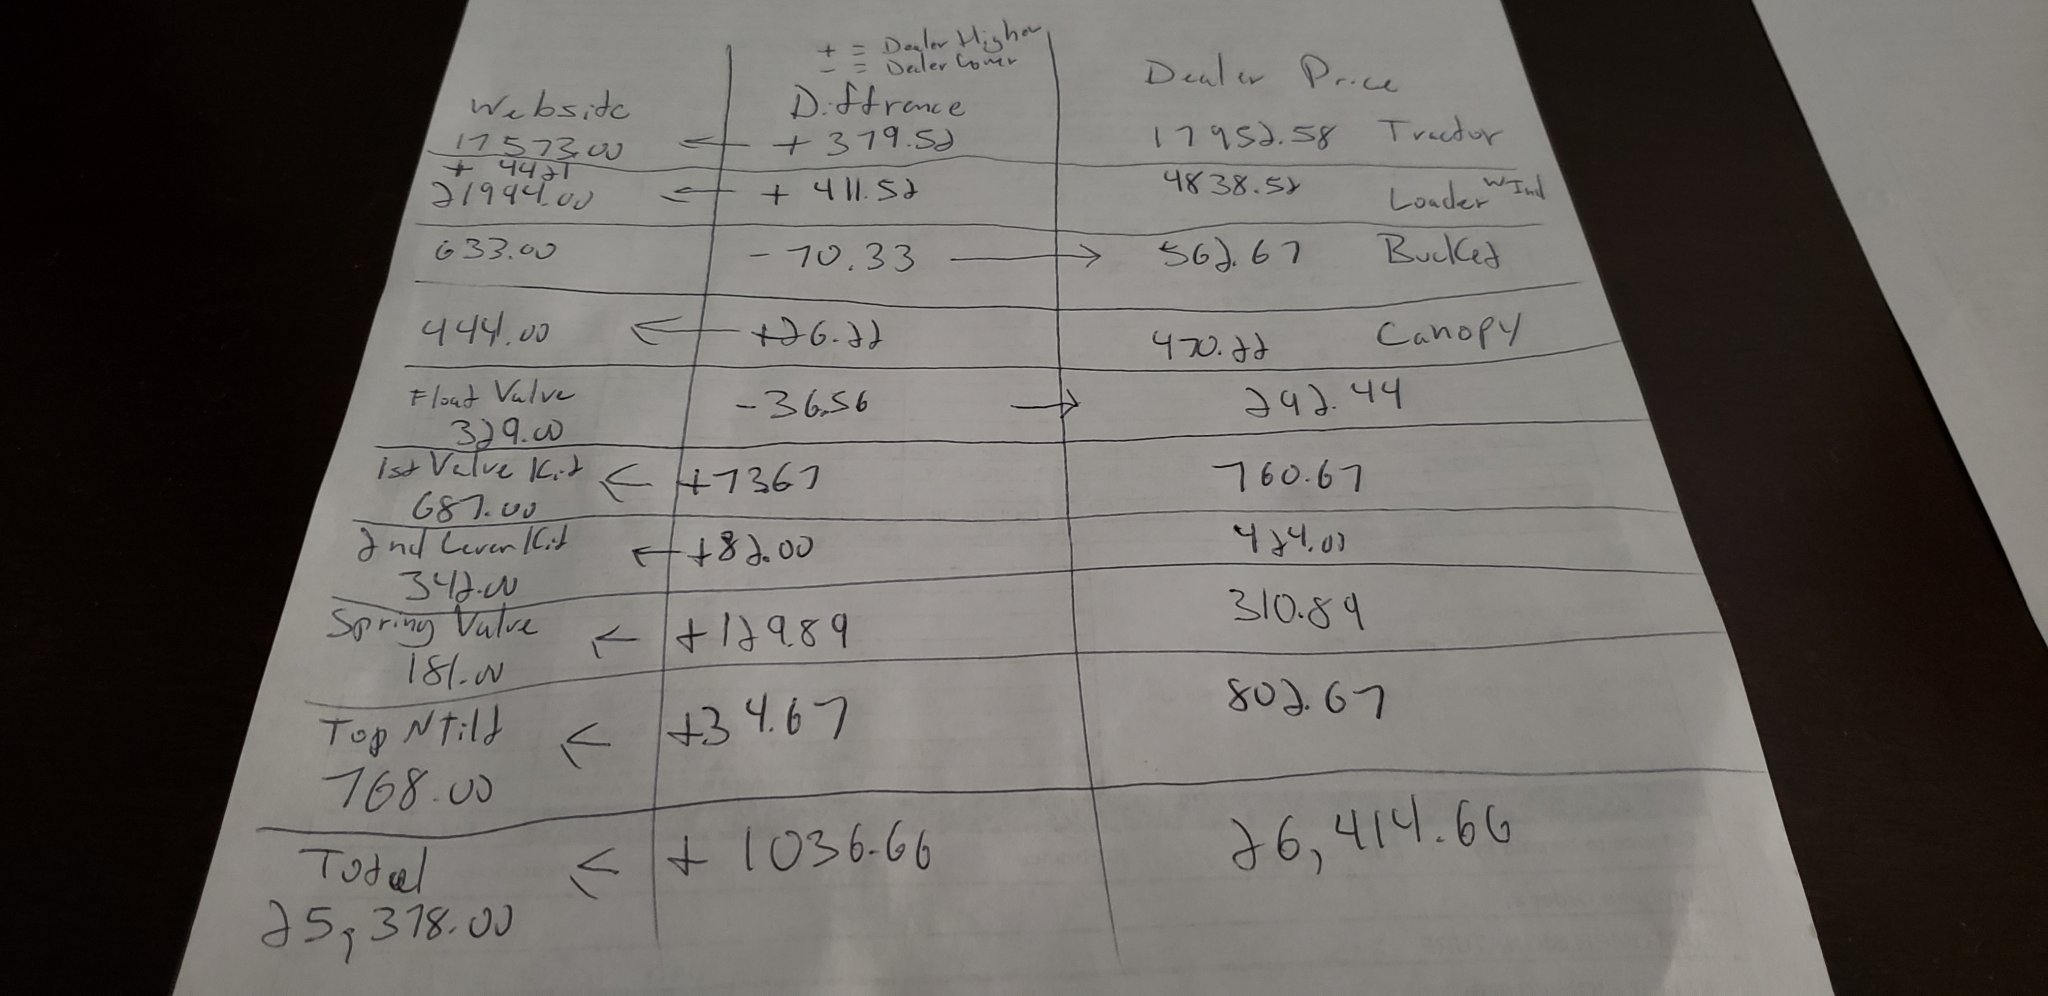 + = Dealer Higher
- = Dealer Lower
Website Diffrence Dealer Price
17573.00 ← +379.52 17952.58 Tractor
+ 4421
21994.00 ← + 411.52 4838.52 Loader W Ind
633.00 - 70.33 → 562.67 Bucket
444.00 ← +26.22 470.22 Canopy
Float Valve
329.00 -36.56 → 292.44
1st Valve Kit
687.00 ← +73.67 760.67
2nd Lever Kit
342.00 ← +82.00 424.00
Spring Valve
181.00 ← +129.89 310.89
Top N Tilt
768.00 ← +34.67 802.67
Total
25,378.00 ← + 1036.66 26,414.66